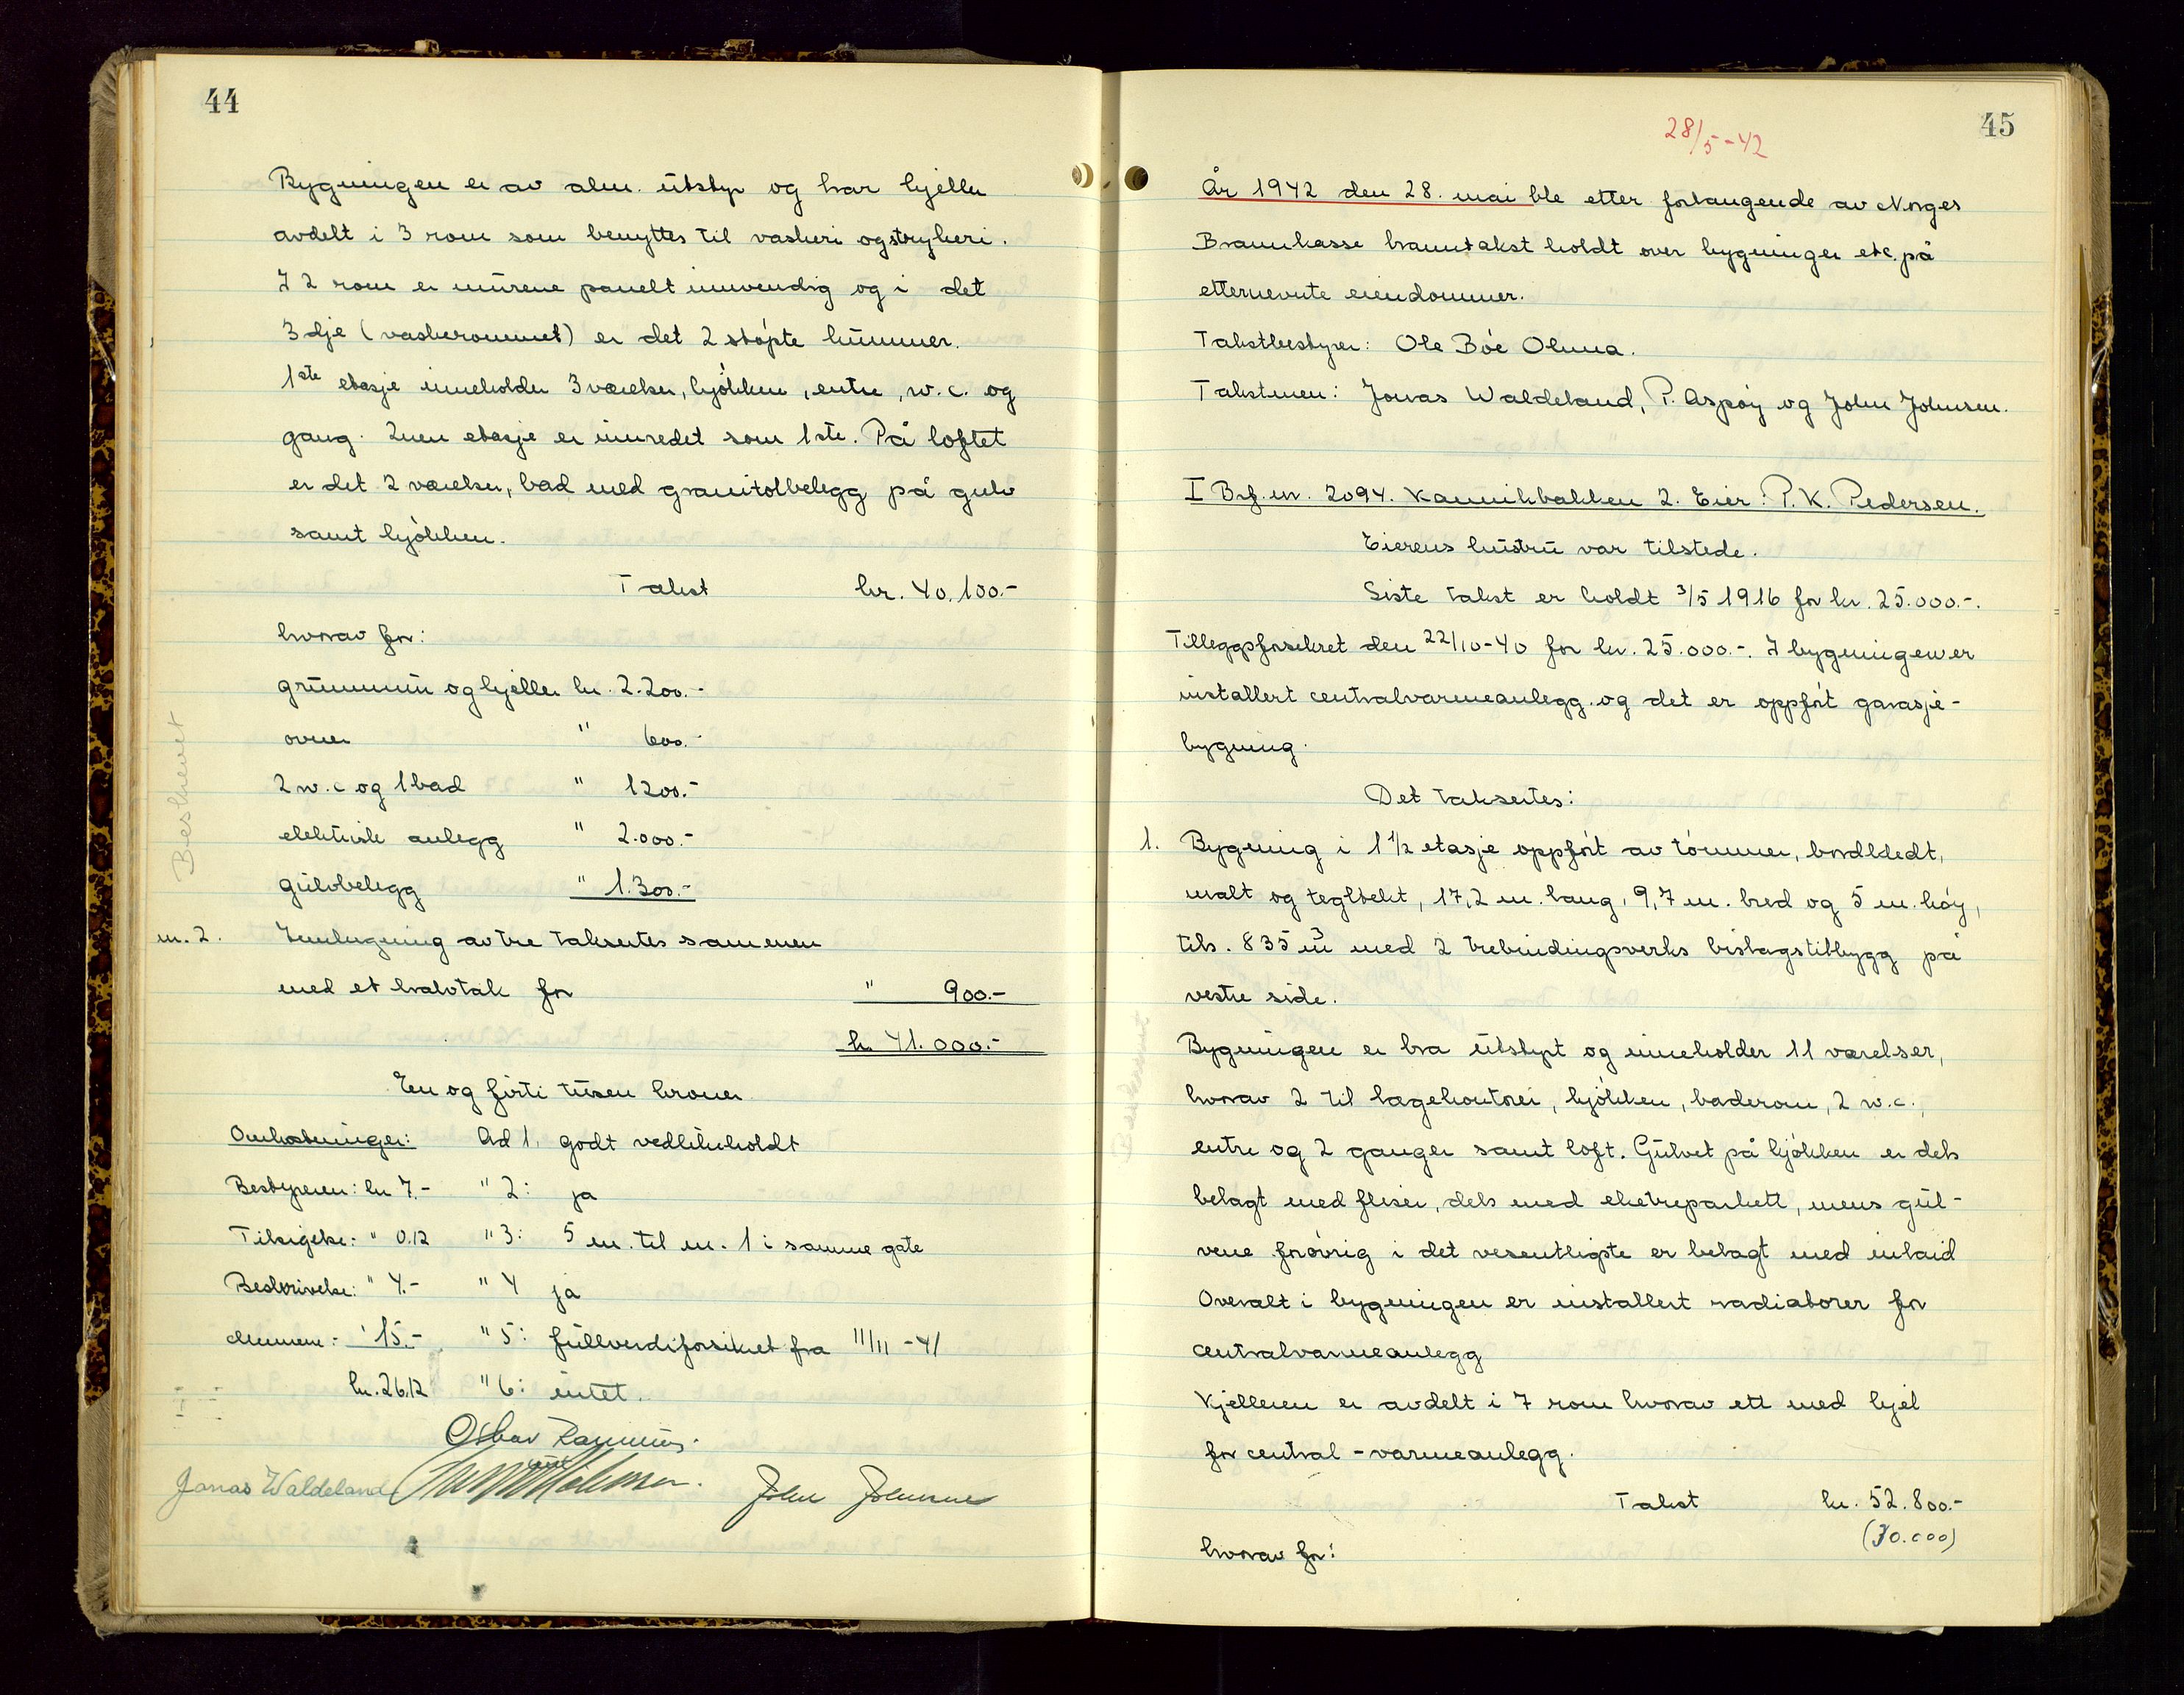 44
Bygningen er av alm. utstyr og har kjeller
avdelt i 3 rom som benyttes til vaskeri og strykeri.
I 2 rom er murene panelt innvendig og i det
3dje (vaskerommet) er det 2 støpte kummer.
1ste etasje inneholder 3 værelser, kjøkken, entre, w.c. og
gang. 2nen etasje er innredet som 1ste. På loftet
er det 2 værelser, bad med granitolbelegg på gulv
samt kjøkken.
Takst kr. 40.100.-
hvorav for:
grunnmur og kjeller kr. 2.200.-
ovner " 600.-
2 w.c og 1 bad " 1200.-
elektrisk anlegg " 2.000.-
gulvbelegg " 1.300.-
Beskrevet
nr. 2. Innhegning av tre takseres sammen
med et halvtak for " 900.-
kr. 41.000.-
En og førti tusen kroner
Omkostninger: Ad 1, godt vedlikeholdt
Bestyreren: kr 7.- " 2: ja
Tilsigelse: " 0.12 " 3: 5 m. til nr. 1 i samme gate
Beskrivelse: " 4.- " 4 ja
Mennene: " 15.- " 5: fullverdiforsikret fra 11/11 - 41
kr. 26.12 " 6: intet.
Jonas Waldeland John Johnsen
45
28/5-42
År 1942 den 28. mai ble etter forlangende av Norges
Brannkasse branntakst holdt over bygninger etc. på
etternevnte eiendommer.
Takstbestyrer: Ole Bøe Olsen.
Takstmenn: Jonas Waldeland, P. Aspøy og John Johnsen.
I Brf. nr. 2094. Kannikbakken 2. Eier: P. K. Pedersen.
Eierens hustru var tilstede.
Siste takst er holdt 3/5 1916 for kr. 25.000.-.
Tilleggsforsikret den 22/10-40 for kr. 25.000.-. I bygningen er
installert centralvarmeanlegg og det er oppført garasje-
bygning.
Det takseres:
1. Bygning i 1 1/2 etasje oppført av tømmer, bordkledt,
malt og tegltekt, 17,2 m. lang, 9,7 m. bred og 5 m. høy,
tils. 835 m3 med 2 trebindingsverks bislagstilbygg på
vestre side.
Beskrevet
Bygningen er bra utstyrt og inneholder 11 værelser,
hvorav 2 til lægekontorer, kjøkken, baderom, 2 w.c.,
entre og 2 ganger samt loft. Gulvet på kjøkken er dels
belagt med fliser, dels med eketreparkett, mens gul-
vene forøvrig i det vesentligste er belagt med inlaid
Overalt i bygningen er installert radiatorer for
centralvarmeanlegg
Kjelleren er avdelt i 7 rom hvorav ett med kjel
for central-varmeanlegg.
Takst kr. 52.800.-
(70.000)
hvorav for: